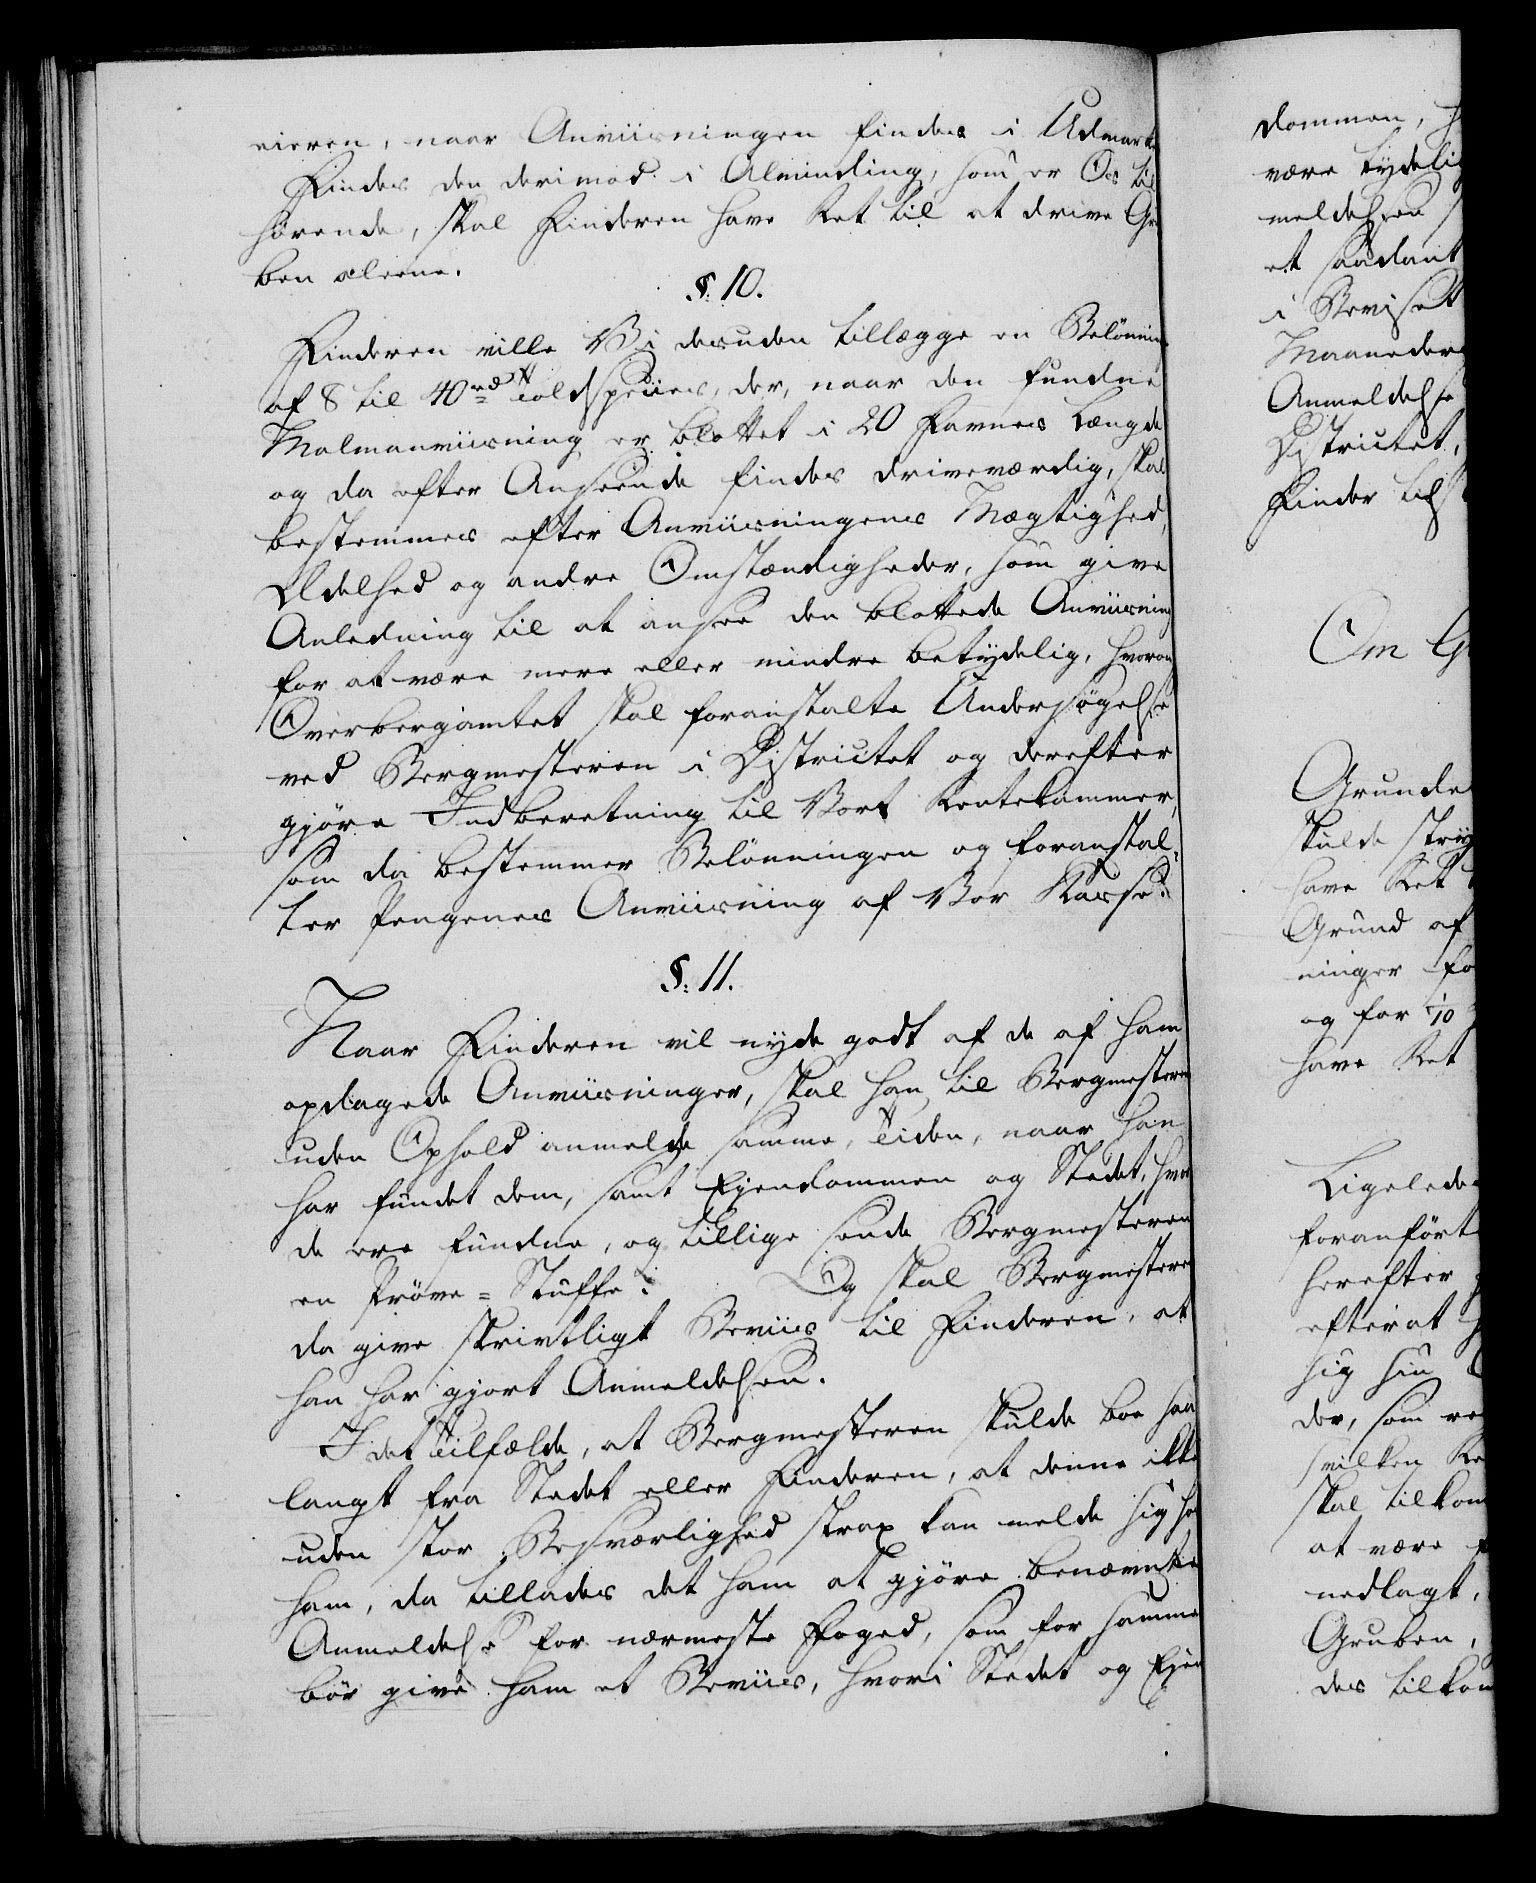 eieren, naar Anviisningen findes i Udmark.
Findes den derimod i Alminding, som er Os til
hörende, skal Finderen have Ret til at drive Gru
ben alene.
§. 10.
Finderen ville Vi desuden tillægge en Belönning
af 8 til 40 rd Toldspecies, der, naar den fundne
Malmanviisning er blottet i 20 Favnes Længde
og da efter Anseende findes driveværdig, skal
bestemmes efter Anviisningens Mægtighed,
Ædelhed og andre Omstændigheder, som give
Anledning til at ansee den blottede Anviisning
for at være mere eller mindre betydelig, hvorom
Overbergamtet skal foranstalte Undersögelse
ved Bergmesteren i Districtet og derefter
gjöre Indberetning til Vort Rentekammer,
som da bestemmer Belönningen og foranstal-
ter Pengenes Anviisning af Vor Kasse.
§. 11.
Naar Finderen vil nyde godt af de af ham
opdagede Anviisninger, skal han til Bergmesteren
uden Ophold anmelde samme, Tiden, naar han
har fundet dem, samt Ejendommen og Stedet, hvor
de ere fundne, og tillige sende Bergmesteren
en Pröve-Stuffe. Og skal Bergmesteren
da give skriftligt Beviis til Finderen, at
han har gjort Anmeldelsen.
I det Tilfælde, at Bergmesteren skulde boe saa
langt fra Stedet eller Finderen, at denne ikke
uden stor Besværlighed strax kan melde sig hos
ham, da tillades det ham at gjöre benævnte
Anmeldelse for nærmeste Foged, som for samme
bör give ham et Beviis, hvori Stedet og Ejen
dommen, h
være tydelig
meldelsen
et saadant
i Beviset
Maaneder
Anmeldelse
Districtet,
Finder tils
Om G
Grunde
skulde stry
have Ret
Grund af
ninger fo
og for 1/10
have Ret
Ligelede
foranfört
herefter
efterat
sig sin
der, som
hvilken Re
skal tilkom
at være
nedlagt,
Gruben,
des tilkom